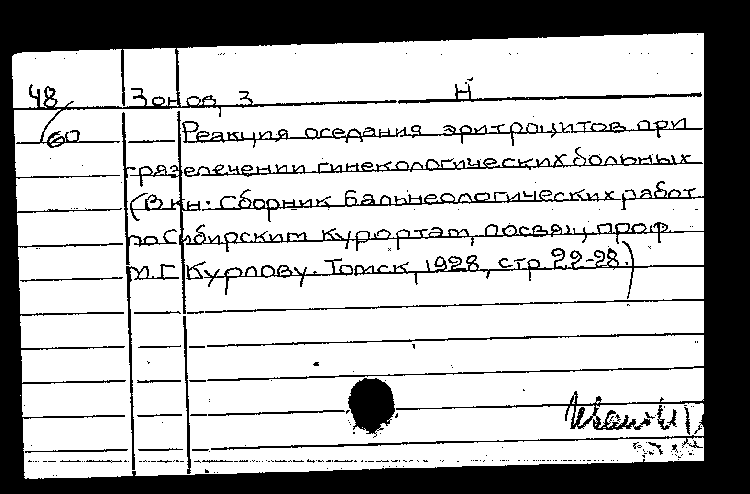 48/60
Зонов, З Н
Реакция оседания эритроцитов при
грязелечении гинекологических больных
(В кн: Сборник бальнеологических работ
по Сибирским курортам, посвящ. проф.
М.Г. Курлову. Томск, 1928, стр. 22-28.)